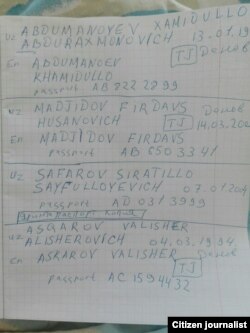 UZ ABDUMANOYEV XAMIDULLO
ABDURAXMONOVICH 13.01.19
En ABDUMANOEV TJ Данов
KHAMIDULLO
passport AB 822 2899
UZ MADJIDOV FIRDAVS Данов
HUSANOVICH TJ 14.03.200
En MADJIDOV FIRDAVS
passport AB 650 3341
UZ SAFAROV SIRATILLO
SAYFULLOYEVICH 07.01.2004
passport AD 031 3999
паспорт копия
UZ ASQAROV VALISHER
ALISHEROVICH 04.03.1994
En ASKAROV VALISHER Данов
TJ
passport AC 159 4432
Citizen journalist